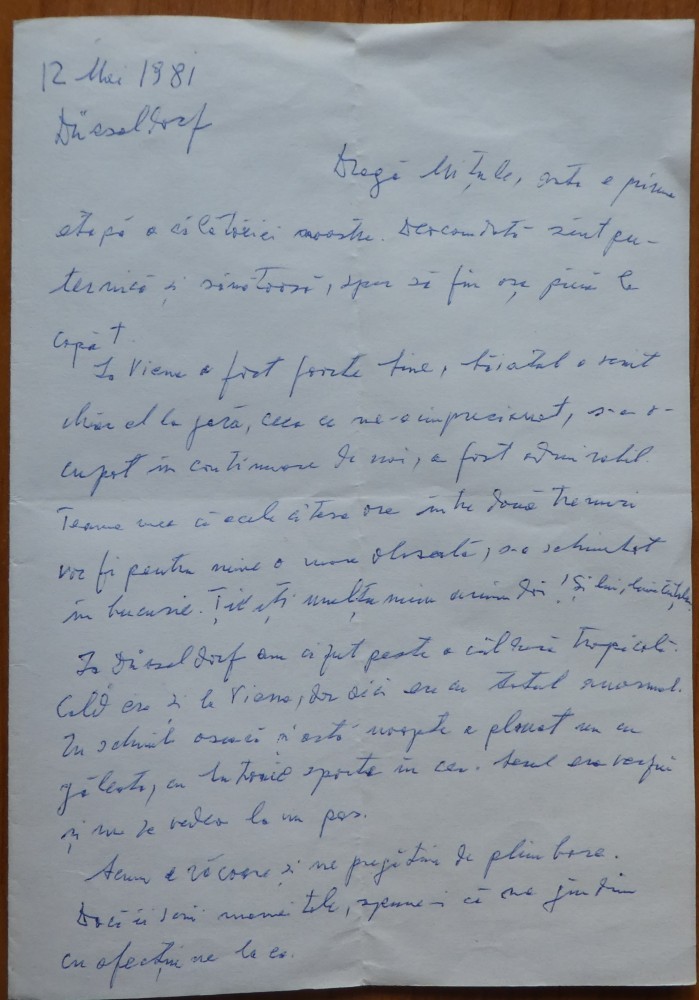 12 Mai 1981
Düsseldorf
Dragă Mițule, asta e prima
etapă a călătoriei noastre. Deocamdată sînt pu-
ternică și sănătoasă, sper să fiu așa pînă la
capăt.
La Viena a fost foarte bine, băiatul a venit
chiar el la gară, ceea ce ne-a impresionat, s-a o-
cupat în continuare de noi, a fost admirabil.
Teama mea că acele cîteva ore între două trenuri
vor fi pentru mine o mare oboseală, s-a schimbat
în bucurie. Ție îți mulțumim amîndoi! Și lui,
La Düsseldorf am căzut peste o căldură tropicală.
Cald era și la Viena, dar aici era cu totul anormal.
În schimb aseară și astă noapte a plouat nu cu
găleata, cu butoaie sparte în cer. Aerul era
și nu se vedea la un pas.
Acum e răcoare și ne pregătim de plimbare.
Dacă îi scrii mamei tale, spune-i că ne gîndim
cu afecțiune la ea.